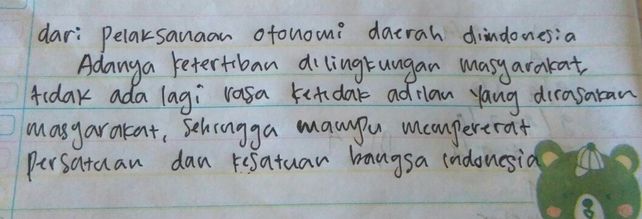 dari pelaksanaan otonomi daerah diindonesia
Adanya ketertiban dilingkungan masyarakat,
tidak ada lagi rasa ketidak adilan yang dirasakan
masyarakat, sehingga mampu mempererat
persatuan dan kesatuan bangsa indonesia